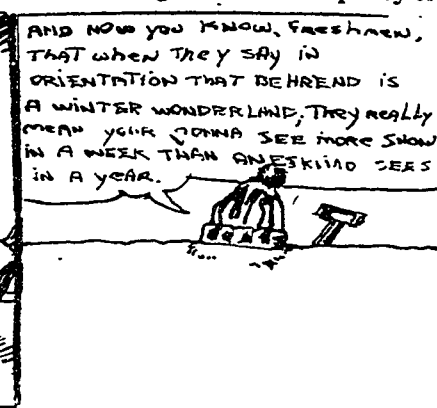 AND NOW YOU KNOW, FRESHMEN,
THAT WHEN THEY SAY IN
ORIENTATION THAT BEHREND IS
A WINTER WONDERLAND, THEY REALLY
MEAN YOUR GONNA SEE MORE SNOW
IN A WEEK THAN AN ESKIMO SEES
IN A YEAR.